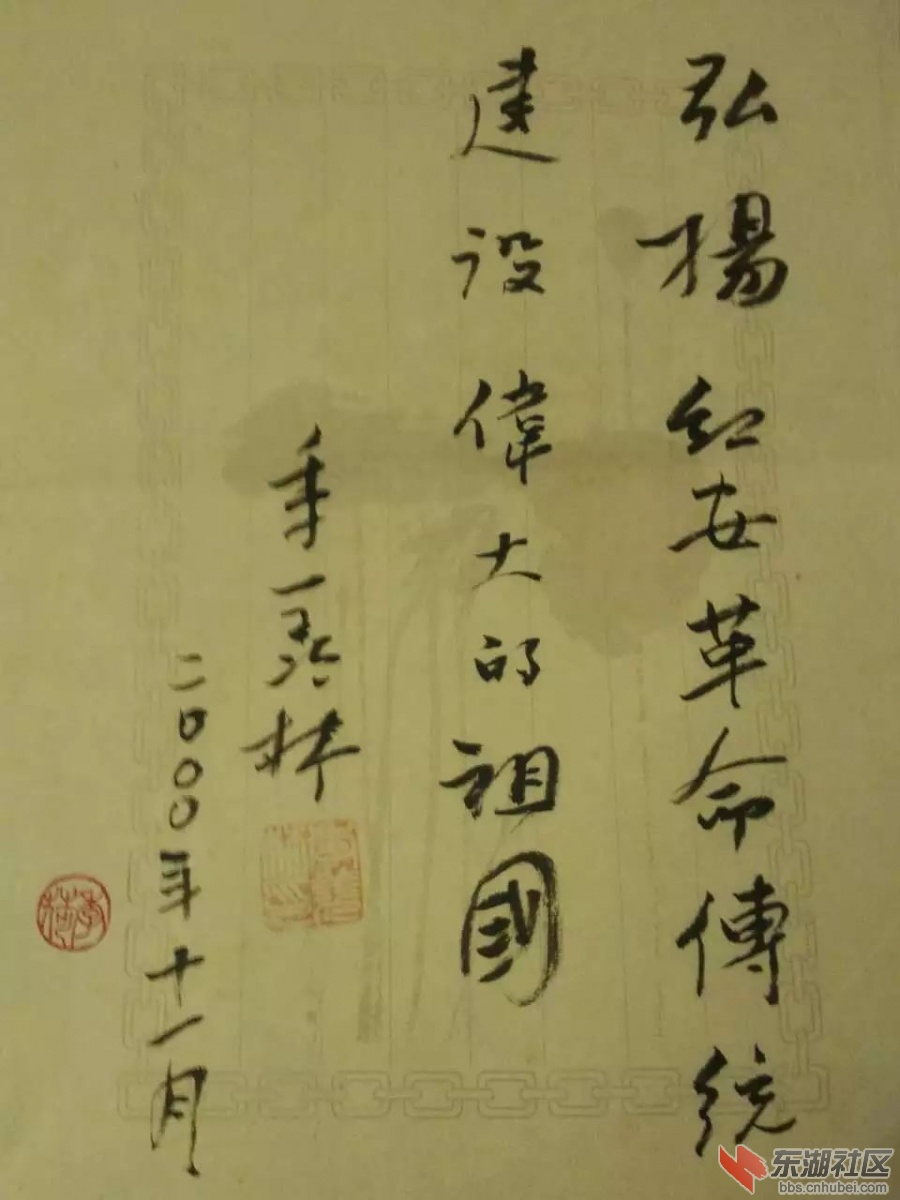 弘揚红安革命傳統
建设偉大的祖國
二〇〇〇年十一月
东湖社区
bbs.cnhubei.com